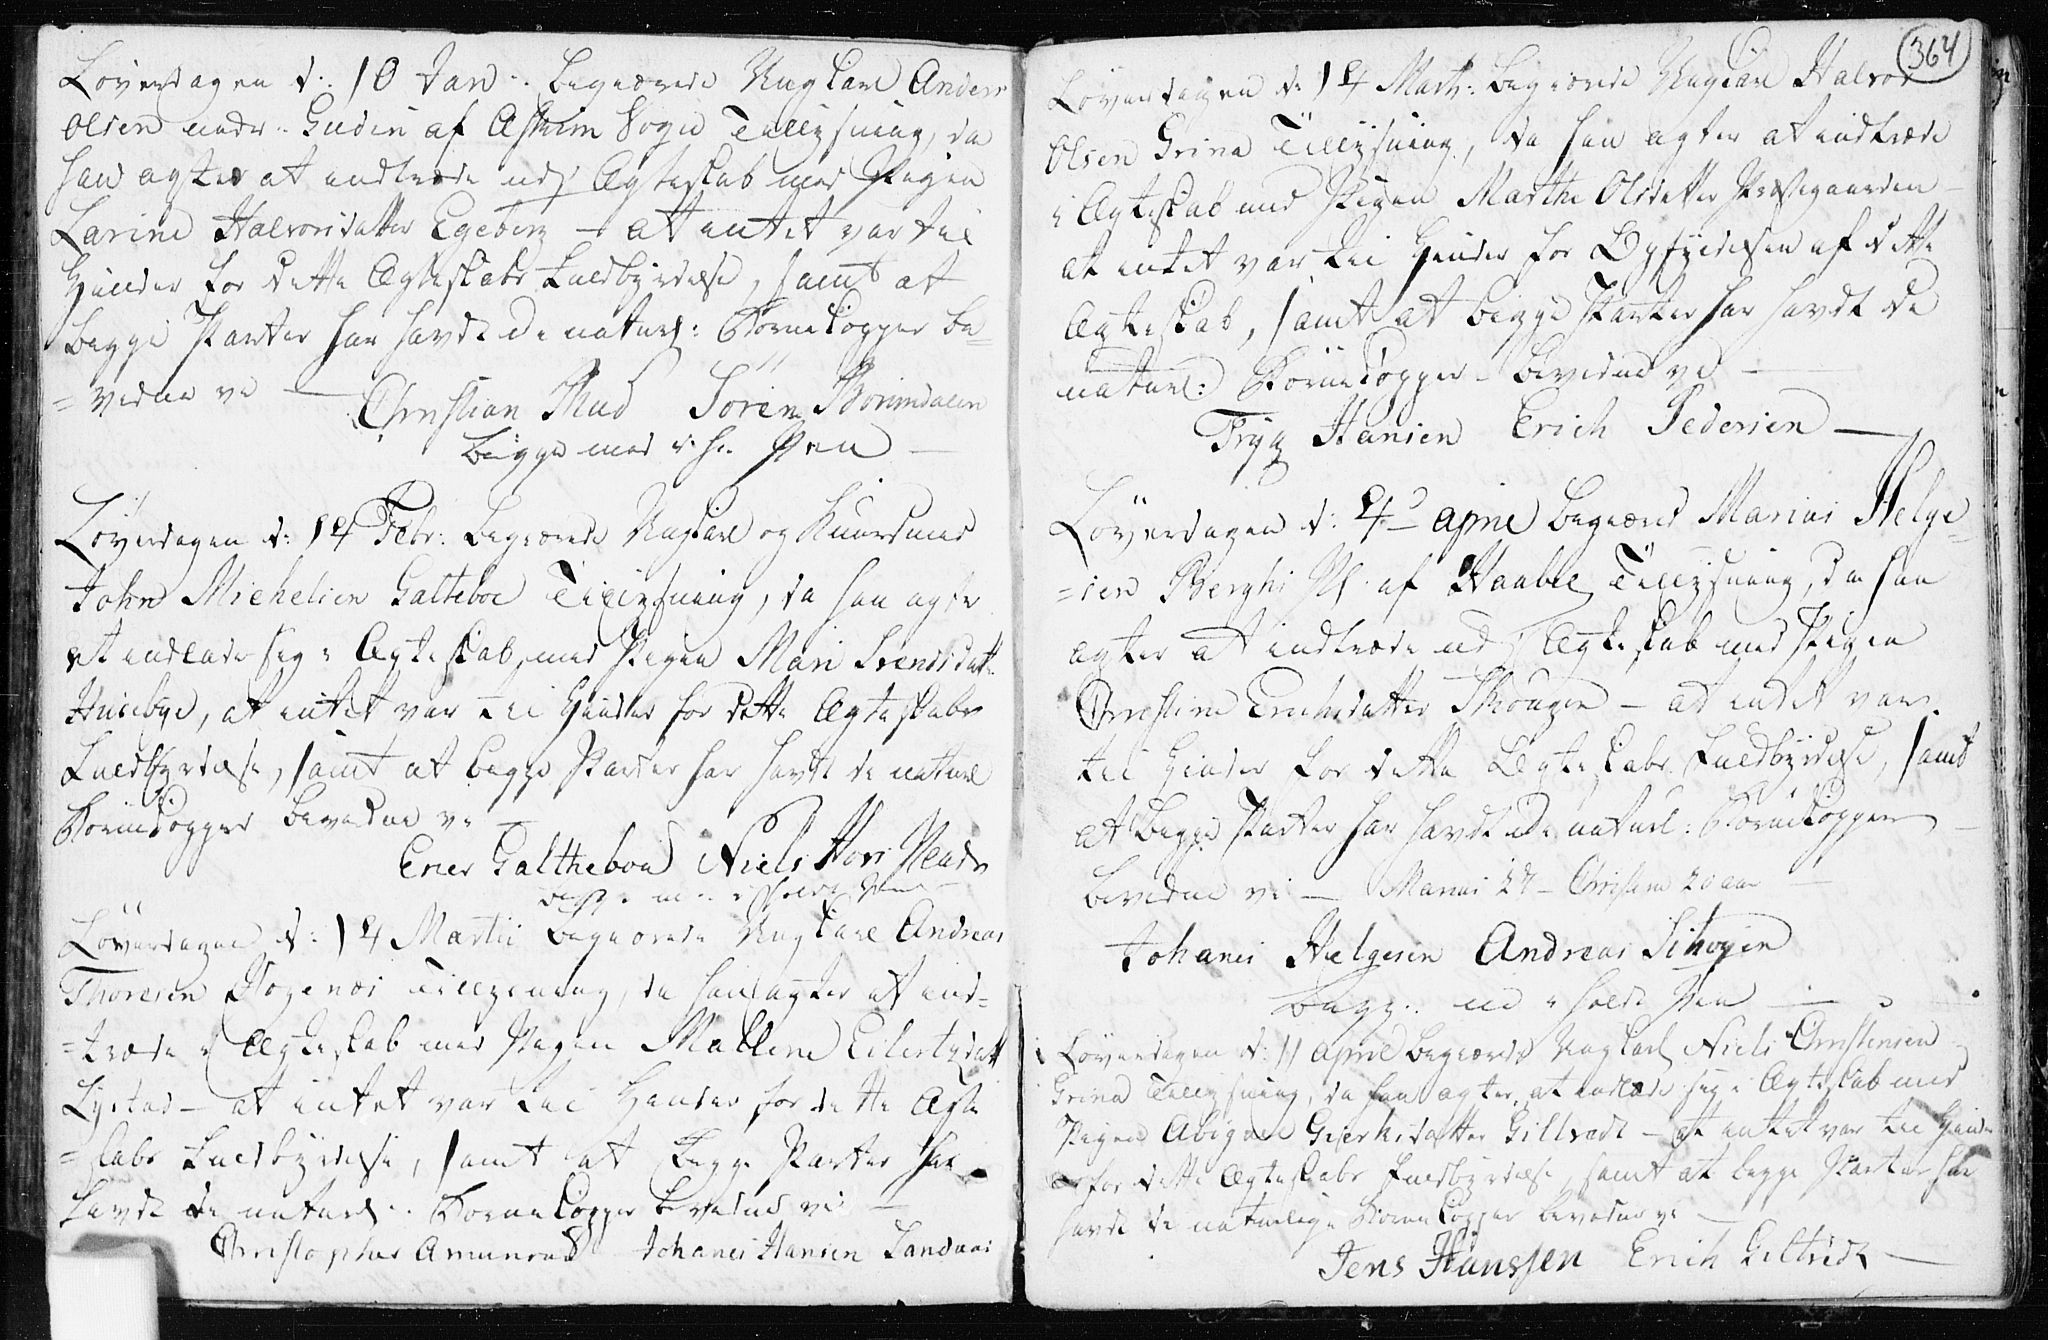 Løverdagen d: 10 Jan: begiærede Ungkarl Anders
Olsen nedr: Guden af Askim Sogn Tillysning, da
han agter at indtræde udj Ægteskab med Pigen
Larine Halvorsdatter Egeberg – at intet var til
Hinder for dette Ægteskabs Fuldbyrdelse, samt at
begge Parter har havdt de naturl: Børnekopper be=
=vidne vi —
Christian Rud Sören
begge med i h: Pen —
Løverdagen d: 14 Febr: begiærede Ungkarl og
John Michelsen Galteboe Tillysning, da han agter
at indlade sig i Ægteskab, med Pigen Mari Svendsdatt:
Husebye, at intet var til Hinder for dette Ægteskabs
Fuldbyrdelse, samt at begge Parter har havdt de naturl
Børnekopper bevidne vi —
Ener Galtheboe Niels
begge med i holdt Pen —
Løverdagen d: 14 Martii begiærede Ungkarl Andreas
Thoresen Tillysning, da han agter at ind=
=træde i Ægteskab med Pigen Mallene Eilertzdatt
Lystad – at intet var til Hinder for dette Ægte
=skabs Fuldbyrdelse, samt at begge Parter har
havdt de naturl: Børnekopper bevidne vi —
Christopher Amunrud Johanes Hansen Sandaas
364
Løverdagen d: 14 Mart: begiærede Ungkarl Halvor
Olsen Grina Tillysning, da han agter at indtræde
i Ægteskab med Pigen Marthe Olsdatter Præstegaarden –
at intet var til Hinder for Opfyldelsen af dette
Ægteskab, samt at begge Parter har havdt de
naturl: Børnekopper – bevidne vi —
Tryg Hansen Erich Pedersen —
Løverdagen d: 4de April begiærede Marius Helge=
=sen Berghs Pl: af Haabøl Tillysning, da han
agter at indtræde udj Ægteskab med Pigen
Christine Erichsdatter Skougen – at intet var
til Hinder for dette Ægteskabs Fuldbyrdelse, samt
at begge Parter har havdt de naturl: Børnekopper –
bevidne vi — Marius 27 – Christine 20 aar —
Johanes Helgesen Andreas Schogen
begge med i holdt Pen —
Løverdagen d: 11 April begiærede Ungkarl Niels Christensen
Grina Tillysning, da han agter, at indlade sig i Ægteskab med
Pigen Abigael Gierhsdatter Giltvedt – at intet var til Hinde
for dette Ægteskabs Fuldbyrdelse, samt at begge Parter har
havdt de naturlige Børnekopper bevidne vi —
Jens Hanssen Erich Giltvedt —